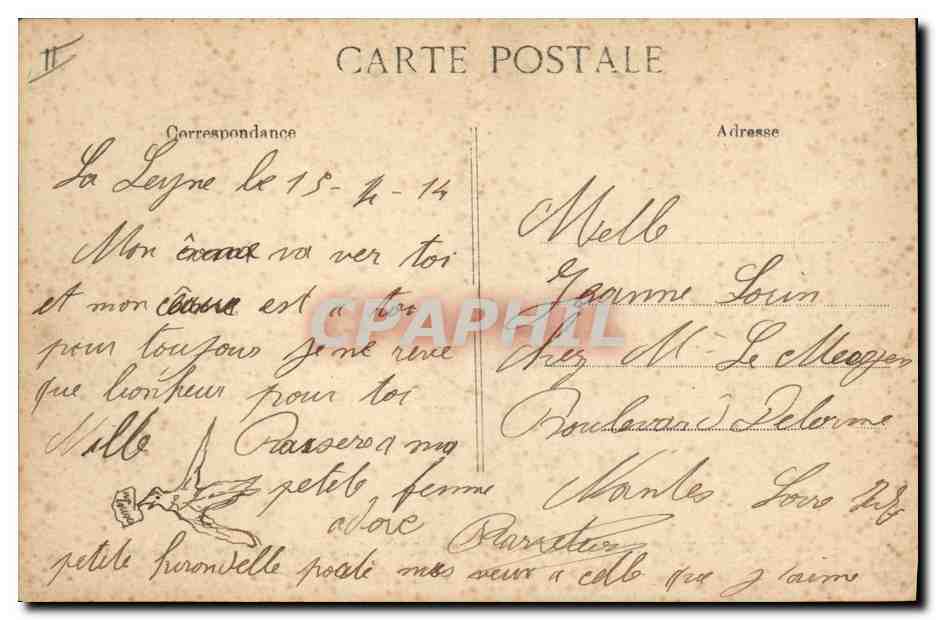 CARTE POSTALE
Correspondance
La Seyne le 15-4-14
Mon va ver toi
et mon est a toi
pour toujours je ne reve
que bonheur pour toi
Mille Baisers a ma
petite femme
adoré
petite hirondelle porte mes veux a celle que j'aime
Adresse
Melle
Jeanne
Chez Mr Le
Boulevard Delorme
Nantes Loire Inf
CPAPHIL